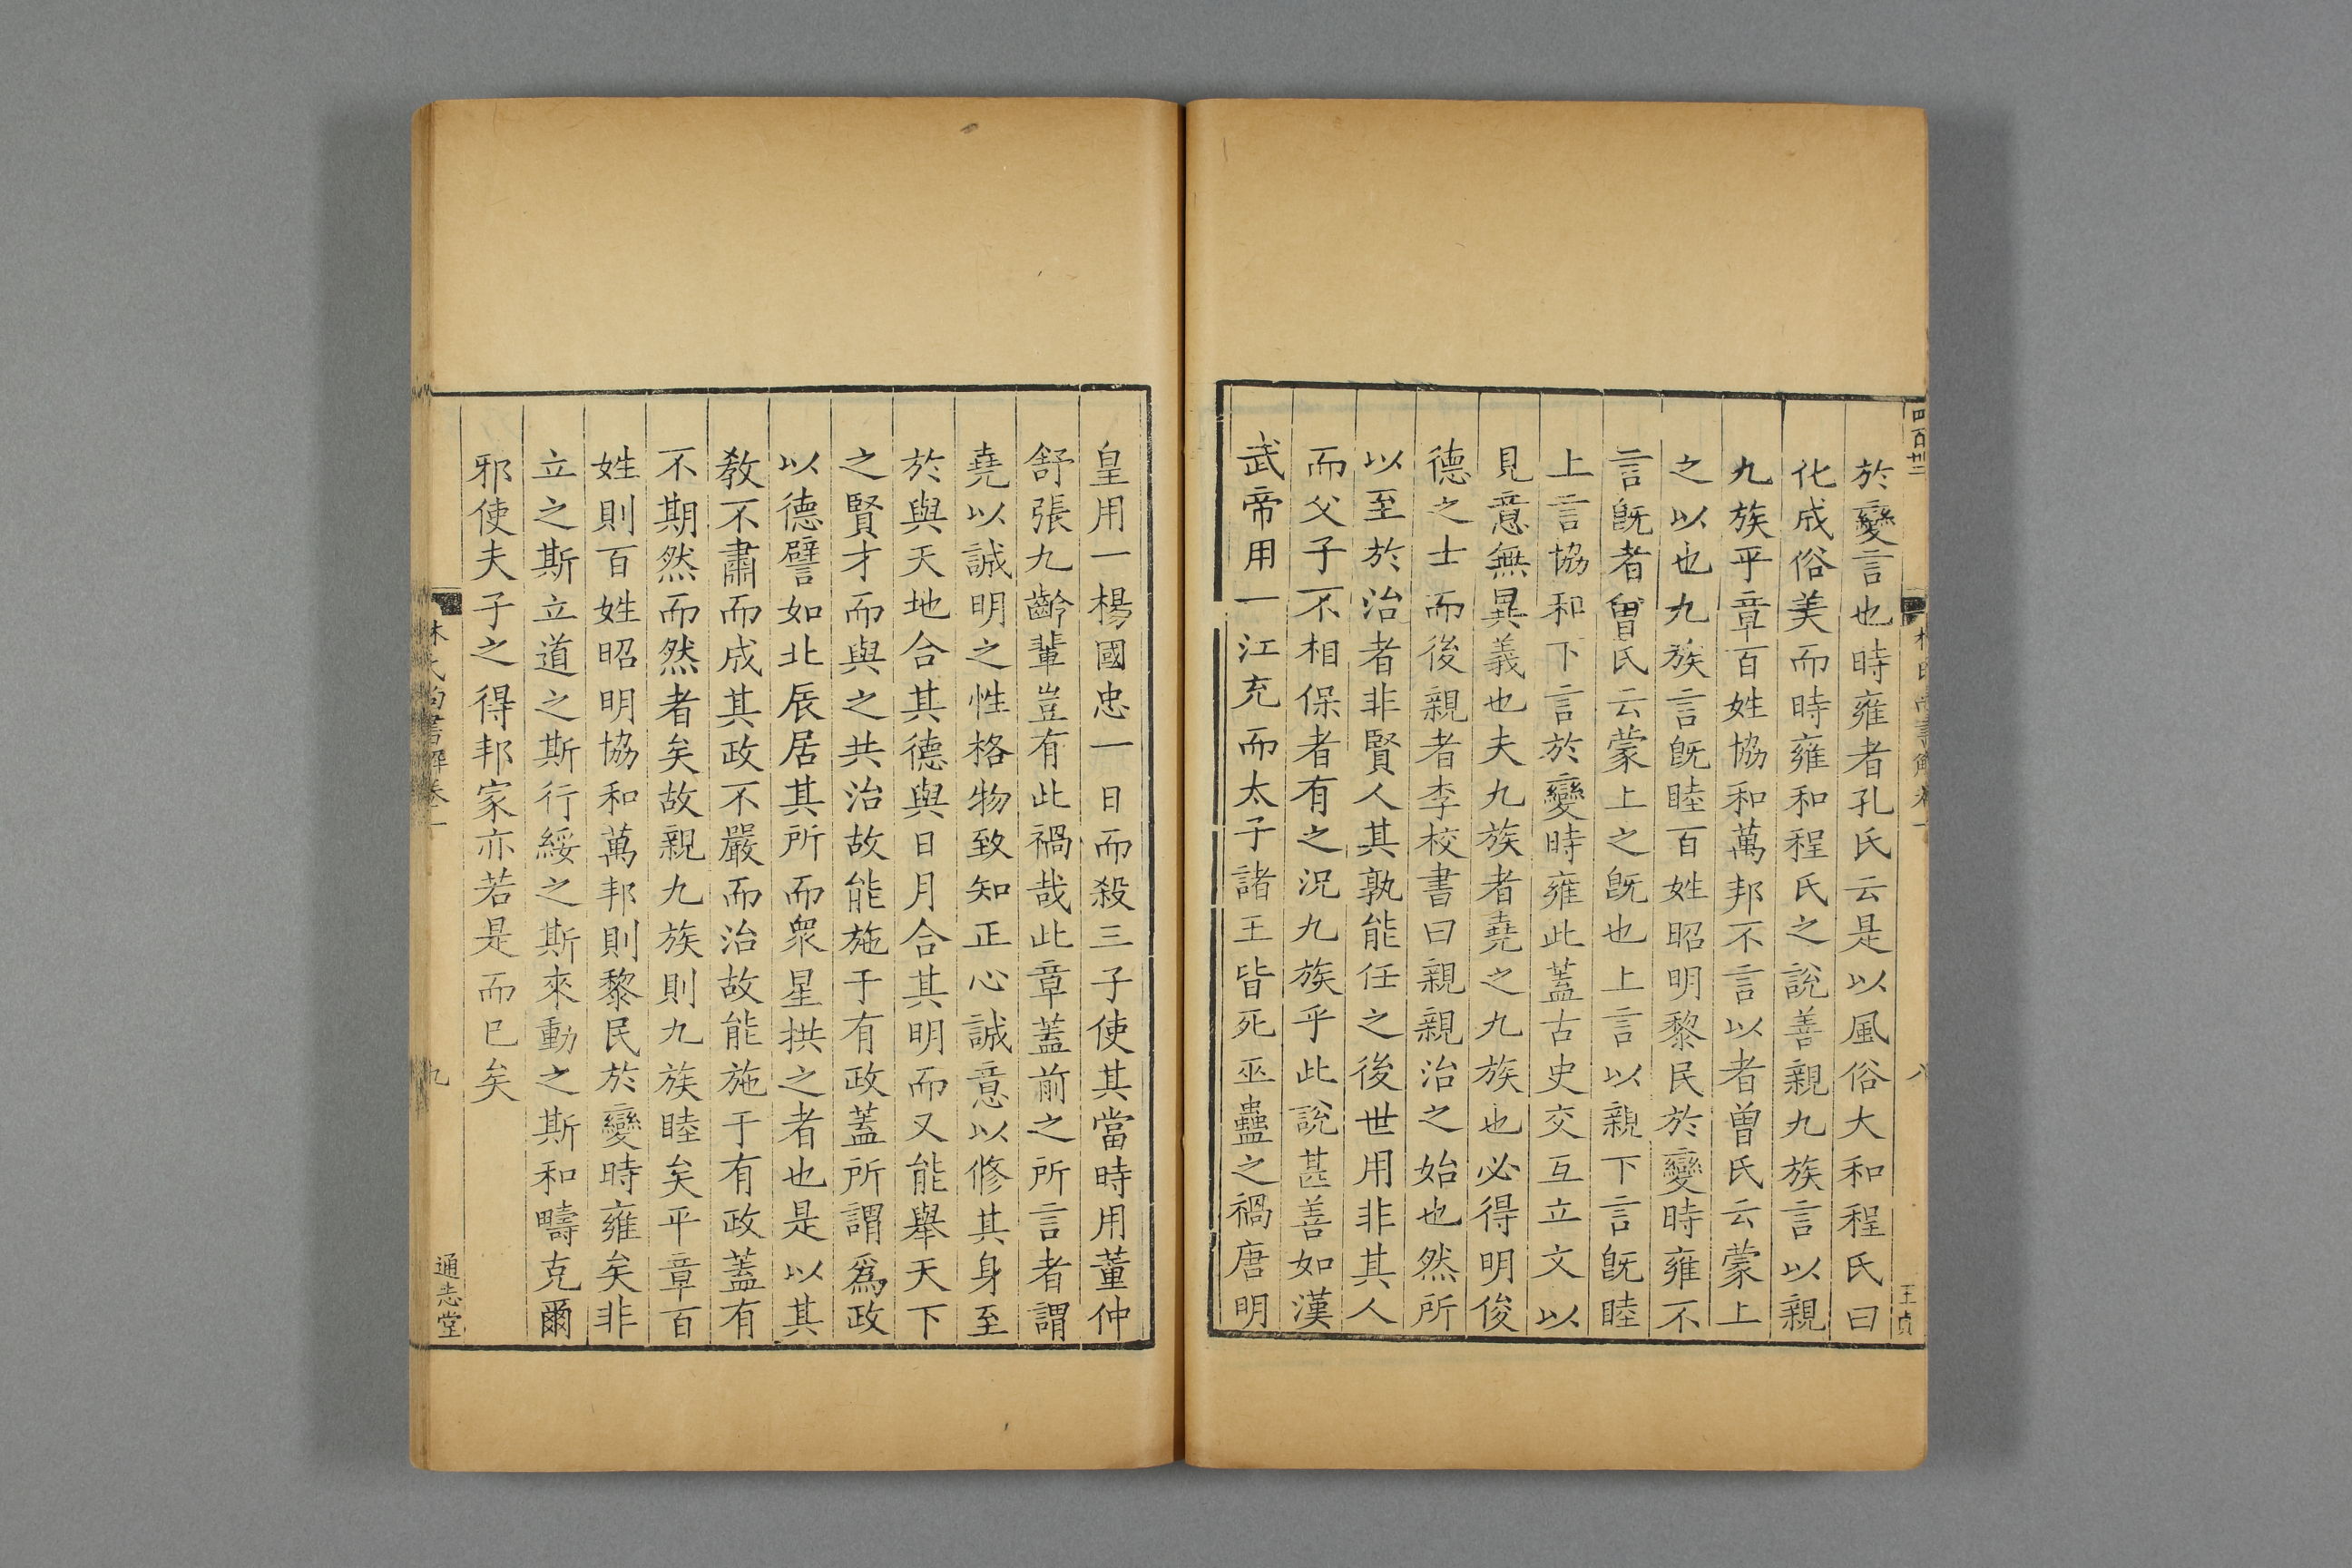 四百卅二
林氏尚書解卷一
八
王貞
於變言也時雍者孔氏云是以風俗大和程氏曰
化成俗美而時雍和程氏之說善親九族言以親
九族平章百姓協和萬邦不言以者曾氏云蒙上
之以也九族言旣睦百姓昭明黎民於變時雍不
言旣者曾氏云蒙上之旣也上言以親下言旣睦
上言協和下言於變時雍此蓋古史交互立文以
見意無異義也夫九族者堯之九族也必得明俊
德之士而後親者李校書曰親親治之始也然所
以至於治者非賢人其孰能任之後世用非其人
而父子不相保者有之况九族乎此說甚善如漢
武帝用一江充而太子諸王皆死巫蠱之禍唐明
皇用一楊國忠一日而殺三子使其當時用董仲
舒張九齡輩豈有此禍哉此章蓋前之所言者謂
堯以誠明之性格物致知正心誠意以修其身至
於與天地合其德與日月合其明而又能舉天下
之賢才而與之共治故能施于有政蓋所謂爲政
以德譬如北辰居其所而衆星拱之者也是以其
敎不肅而成其政不嚴而治故能施于有政蓋有
不期然而然者矣故親九族則九族睦矣平章百
姓則百姓昭明協和萬邦則黎民於變時雍矣非
立之斯立道之斯行綏之斯來動之斯和疇克爾
邪使夫子之得邦家亦若是而已矣
林氏尚書解卷一
九
通志堂